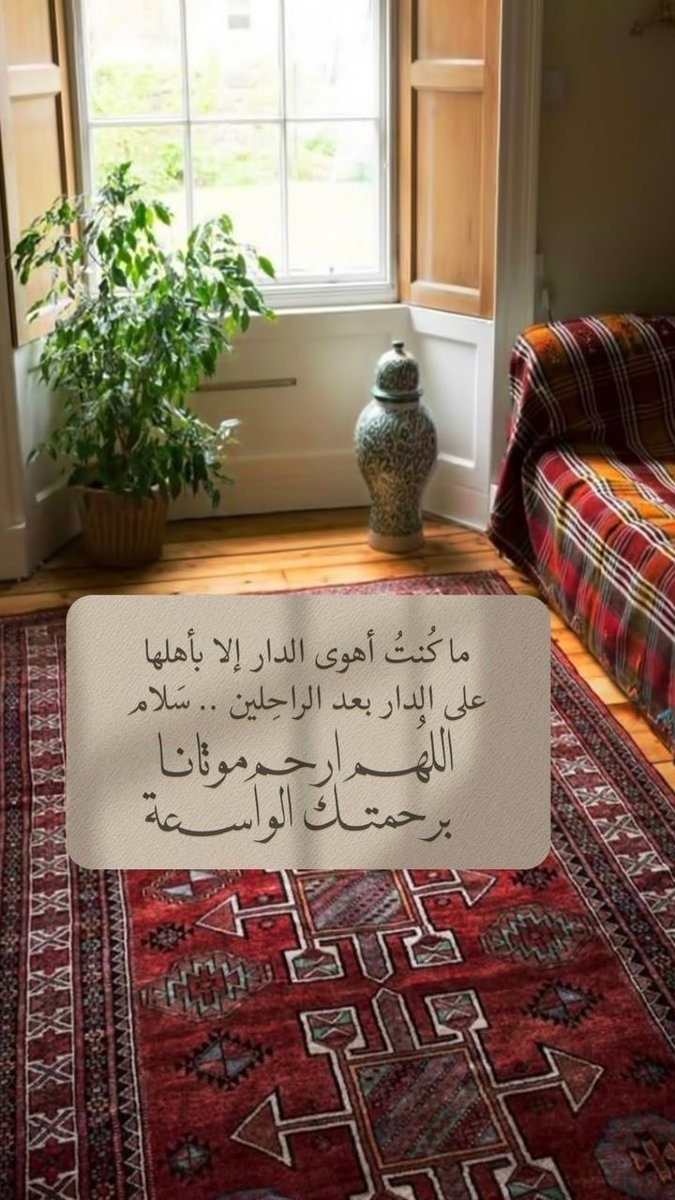 ما كُنتُ أهوى الدار إلا بأهلها
على الدار بعد الراحِلين .. سَلام
اللهُم ارحم موتانا
برحمتك الواسعة